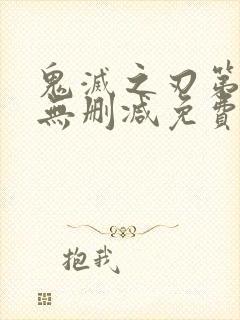 鬼滅之刃第
無刪減免費
抱我